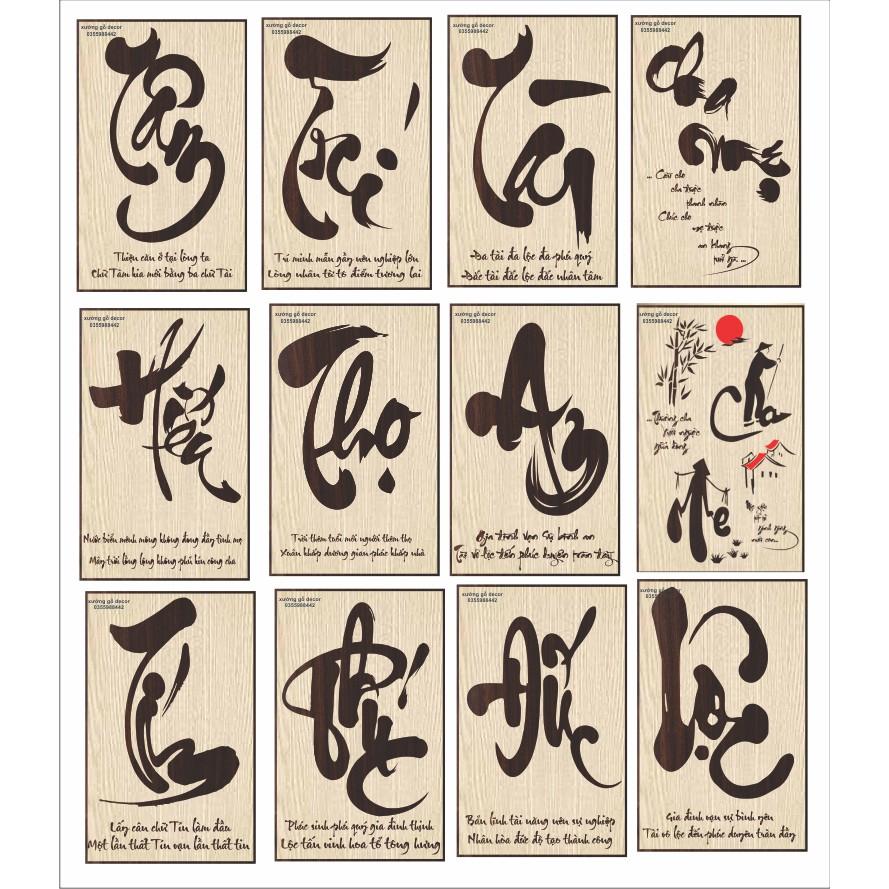 xưởng gỗ decor
0355988442
Tâm
Thiện căn ở tại lòng ta
Chữ Tâm kia mới bằng ba chữ Tài
xưởng gỗ decor
0355988442
Trí
Trí minh mẫn gây nên nghiệp lớn
Lòng nhân từ tô điểm tương lai
xưởng gỗ decor
0355988442
Tài
Đa tài đa lộc đa phú quý
Đắc tài đắc lộc đắc nhân tâm
xưởng gỗ decor
0355988442
Cha
... Cầu cho
cha được
thanh nhàn
Chúc cho
mẹ được
an khang
xưởng gỗ decor
0355988442
Hiếu
Nước biển mênh mông không đong đầy tình mẹ
Mây trời lồng lộng không phủ kín công cha
xưởng gỗ decor
0355988442
Thọ
Trời thêm tuổi mới người thêm thọ
Xuân khắp dương gian phúc khắp nhà
xưởng gỗ decor
0355988442
An
Gia đình vạn sự bình an
Tài vô lộc tiến phúc duyên tràn đầy
xưởng gỗ decor
0355988442
Cha
Mẹ
xưởng gỗ decor
0355988442
Tín
Lấy câu chữ Tín làm đầu
Một lần thất Tín vạn lần thất tin
xưởng gỗ decor
0355988442
Phúc
Phúc sinh phú quý gia đình thịnh
Lộc tấn vinh hoa tổ tông hưng
xưởng gỗ decor
0355988442
Đức
Bản lĩnh tài năng nên sự nghiệp
Nhân hòa đức độ tạo thành công
xưởng gỗ decor
0355988442
Lộc
Gia đình vạn sự bình yên
Tài vô lộc đến phúc duyên tràn đầy